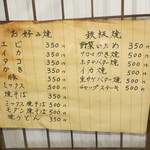 お好み焼
エビ 350円
イカ 350円
タコ 350円
かき 350円
豚 350円
ミックス 500円
焼そば 350円
ミックス焼そば 500円
モダン焼そば 500円
焼うどん 350円
鉄板焼
野菜いため 350円
かき焼 500円
バター焼 500円
イカ焼 500円
バター焼 500円
ステーキ 500円